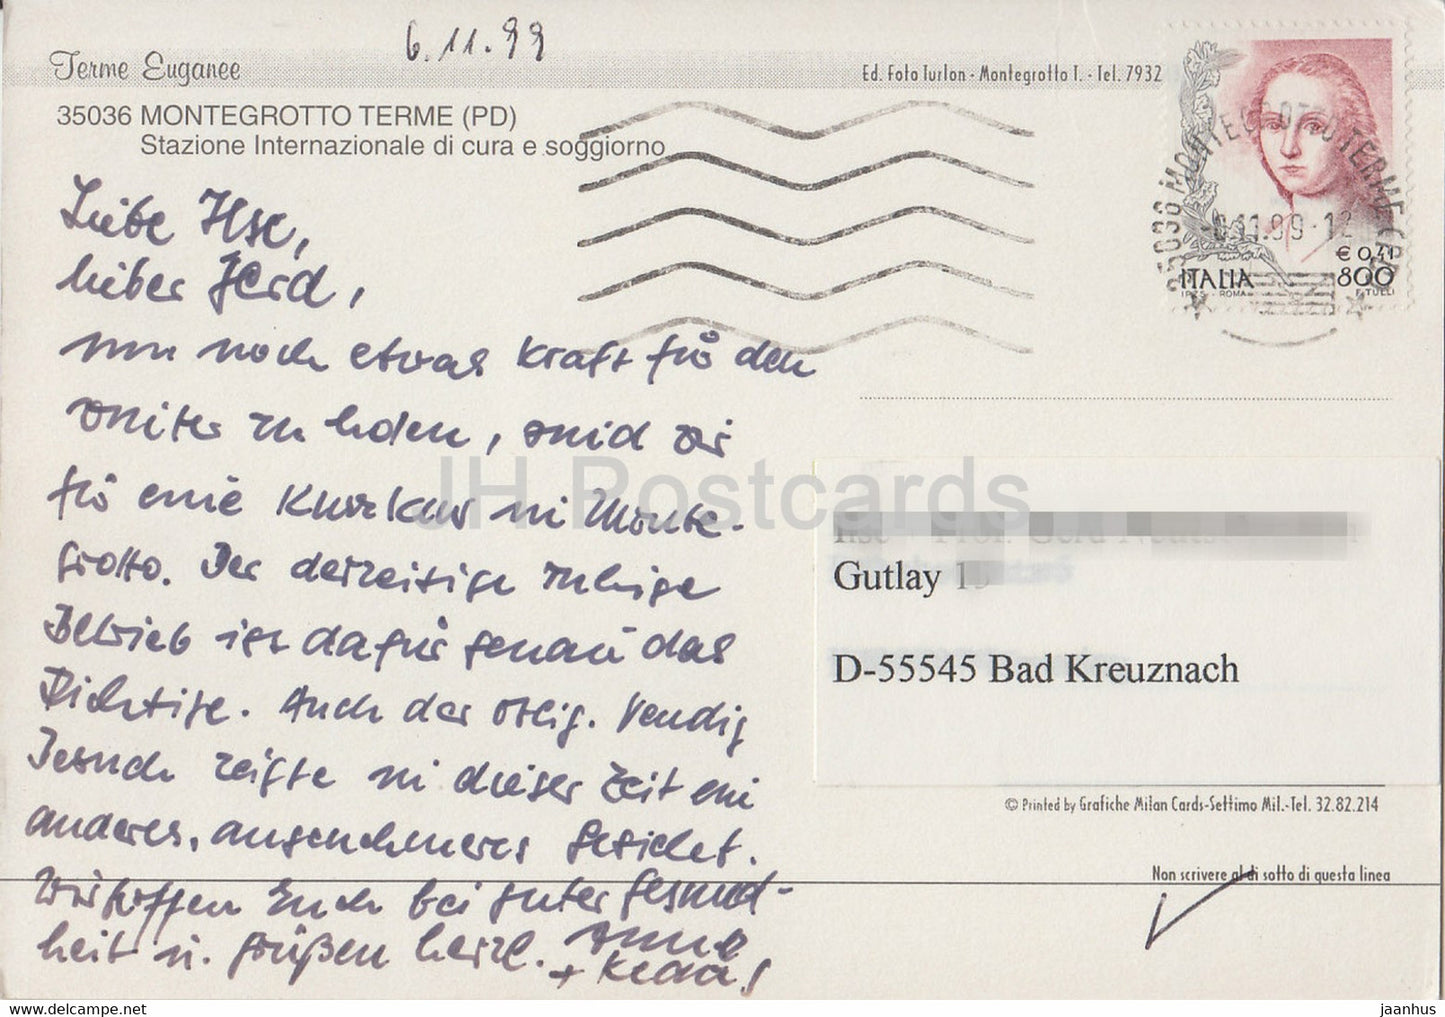 6.11.99
Terme Euganee
Ed. Foto Turlon - Montegrotto T. - Tel. 7932
35036 MONTEGROTTO TERME (PD)
Stazione Internazionale di cura e soggiorno
35036 MONTEGROTTO TERME
6.11.99-12
€ 0,41
ITALIA 800
I.P.Z.S. - ROMA F. TULLI
Liebe Ilse,
lieber Gerd,
um noch etwas Kraft für den
Winter zu holen, sind wir
für eine Kurzkur in Monte-
grotto. Der derzeitige ruhige
Betrieb ist dafür genau das
Richtige. Auch der oblig. Venedig
Besuch zeigte in dieser Zeit ein
anderes, angenehmeres Gesicht.
Wir hoffen Euch bei guter Gesund-
heit u. grüßen herzl.
JH Postcards
Gutlay
D-55545 Bad Kreuznach
© Printed by Grafiche Milan Cards-Settimo Mil.-Tel. 32.82.214
Non scrivere al di sotto di questa linea
www.delcampe.net
jaanhus